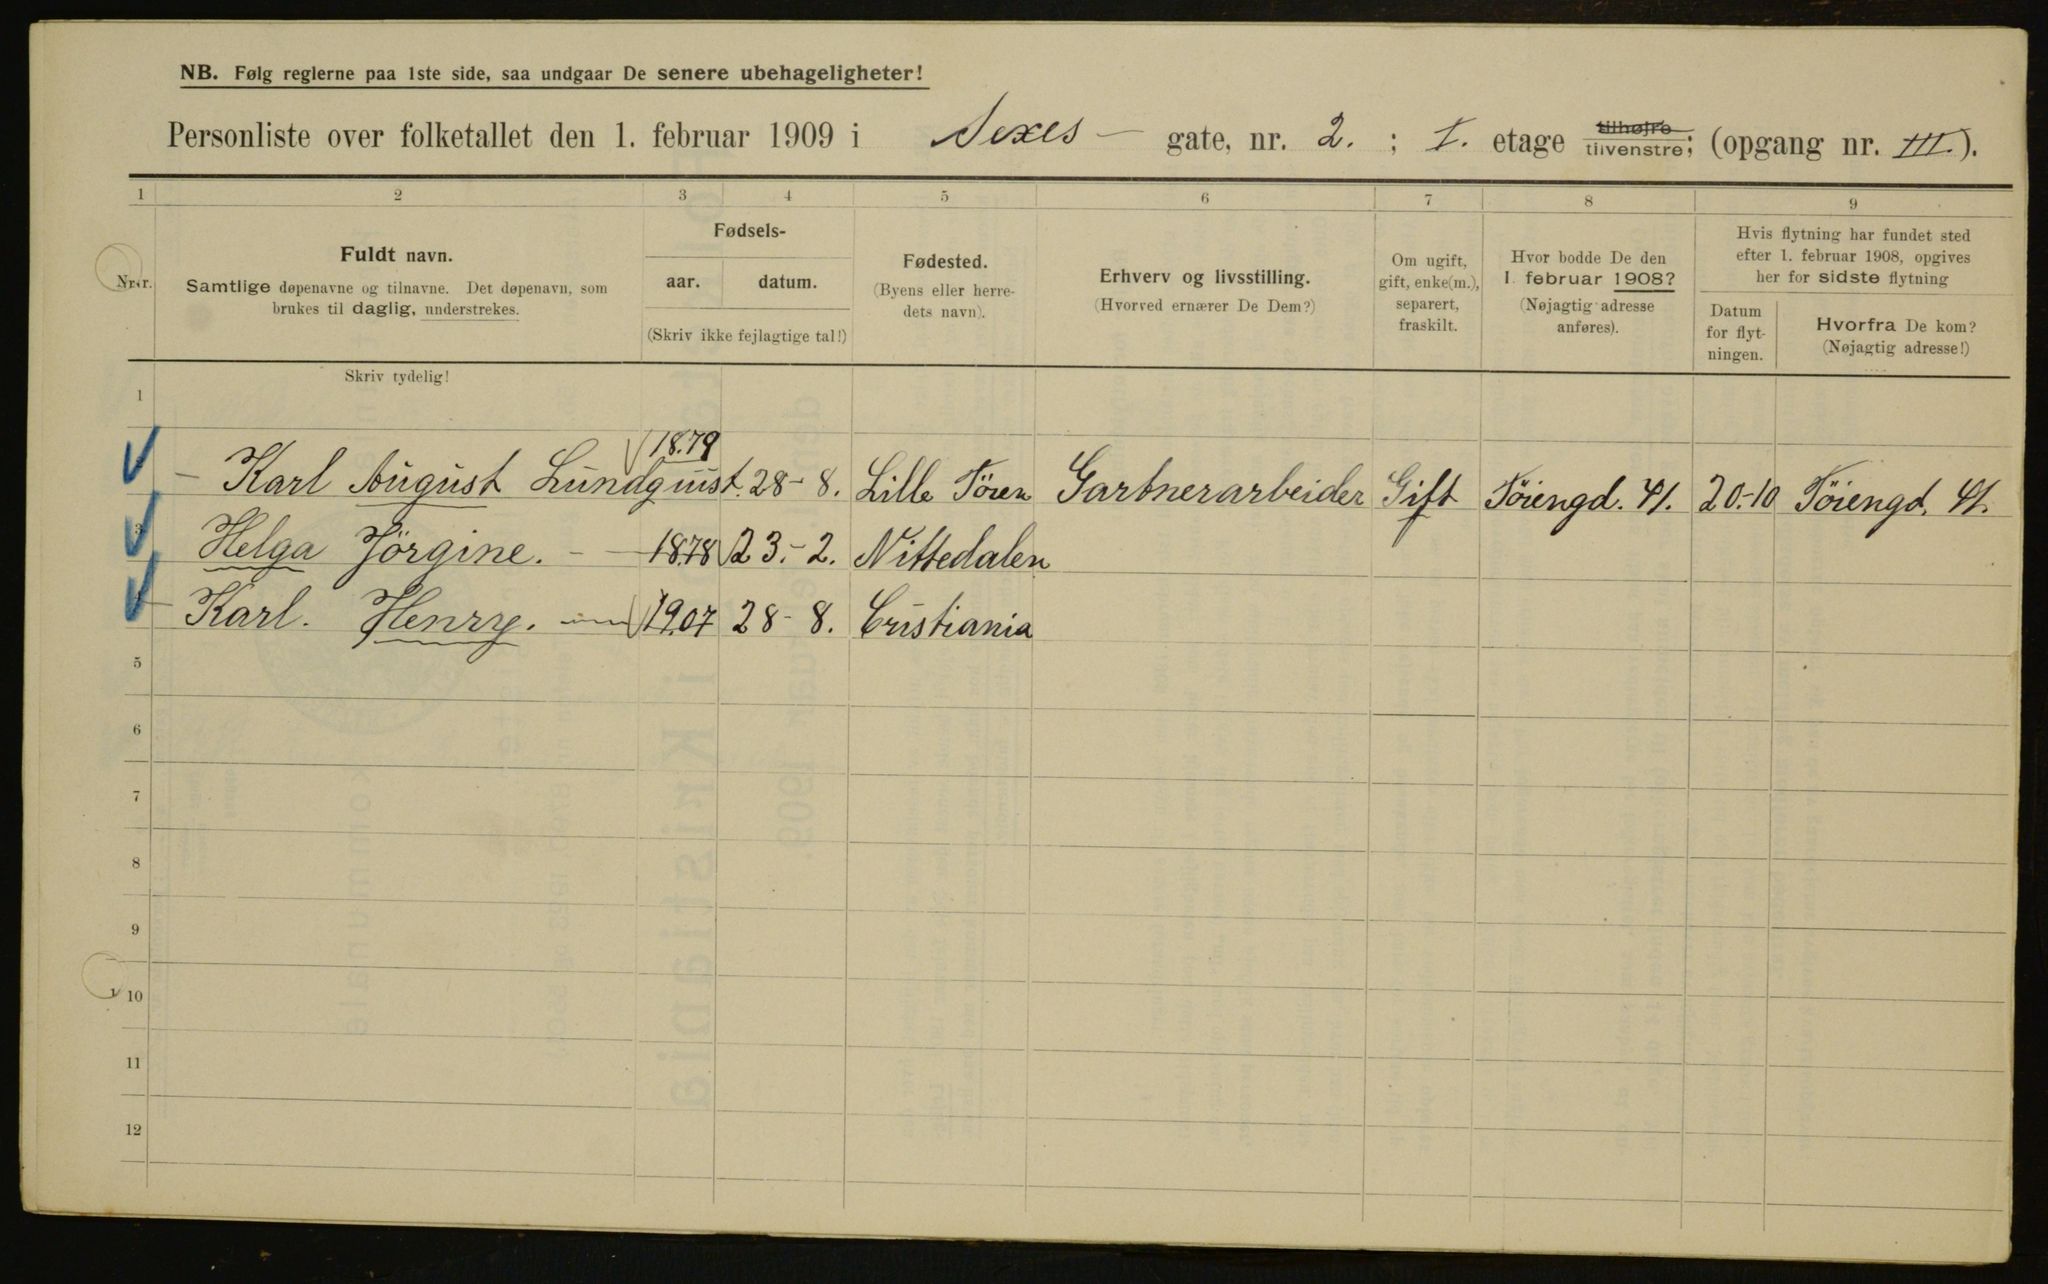 NB. Følg reglerne paa 1ste side, saa undgaar De senere ubehageligheter!
Personliste over folketallet den 1. februar 1909 i Sexes – gate, nr. 2. ; I. etage tilhøjre tilvenstre; (opgang nr. III.).
1 2 3 4 5 6 7 8 9
Nr. Fuldt navn. Samtlige døpenavne og tilnavne. Det døpenavn, som brukes til daglig, understrekes.
Fødsels-
aar. datum.
(Skriv ikke fejlagtige tal!)
Fødested.
(Byens eller herre-
dets navn).
Erhverv og livsstilling.
(Hvorved ernærer De Dem?)
Om ugift,
gift, enke(m.),
separert,
fraskilt.
Hvor bodde De den
1. februar 1908?
(Nøjagtig adresse
anføres).
Hvis flytning har fundet sted
efter 1. februar 1908, opgives
her for sidste flytning
Datum
for flyt-
ningen.
Hvorfra De kom?
(Nøjagtig adresse!)
Skriv tydelig!
1
Karl August Lundquist. 1879 28-8. Lille Töien Gartnerarbeider Gift Töiengd. 41. 20.-10 Töiengd. 41.
3 Helga Jörgine. – – 1878 23.-2. Nittedalen
Karl. Henry. – 1907 28-8. Cristiania
5
6
7
8
9
10
11
12